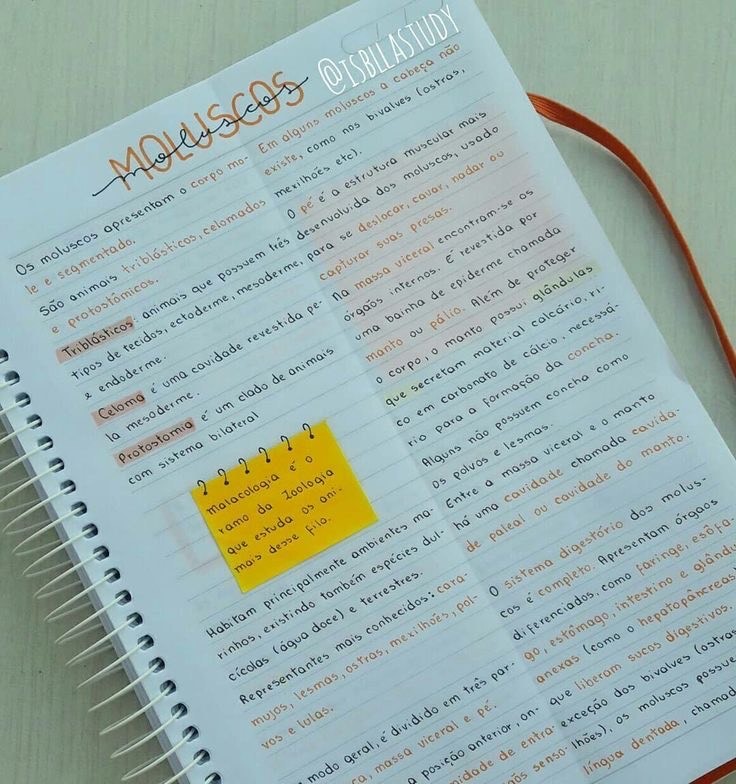 MOLUSCOS
moluscos
@ISBILASTUDY
Os moluscos apresentam o corpo mo-
le e segmentado.
São animais triblásticos, celomados
e protostômicos.
Triblásticos: animais que possuem três
tipos de tecidos, ectoderme, mesoderme,
e endoderme.
Celoma é uma cavidade revestida pe-
la mesoderme.
Protostomia é um clado de animais
com sistema bilateral
malacologia é o
ramo da Zoologia
que estuda os ani-
mais desse filo.
Habitam principalmente ambientes ma-
rinhos, existindo também espécies dul-
cícolas (água doce) e terrestres.
Representantes mais conhecidos: cara-
mujos, lesmas, ostras, mexilhões, pol-
vos e lulas.
modo geral, é dividido em três par-
massa viceral e pé.
a posição anterior, on-
de entra-
senso-
Em alguns moluscos a cabeça não
existe, como nos bivalves (ostras,
mexilhões etc).
O pé é a estrutura muscular mais
desenvolvida dos moluscos, usado
para se deslocar, cavar, nadar ou
capturar suas presas.
Na massa viceral encontram-se os
órgaõs internos. É revestida por
uma bainha de epiderme chamada
manto ou pálio. Além de proteger
o corpo, o manto possui glândulas
que secretam material calcário, ri-
co em carbonato de cálcio, necessá-
rio para a formação da concha.
Alguns não possuem concha como
os polvos e lesmas.
Entre a massa viceral e o manto
há uma cavidade chamada cavida-
de paleal ou cavidade do manto.
O sistema digestório dos molus-
cos é completo. Apresentam órgãos
diferenciados, como faringe, esôfa-
go, estômago, intestino e glându
anexas (como o hepatopâncreas
que liberam sucos digestivos.
exceção dos bivalves (ostras
lhões), os moluscos possue
língua dentada, chamad